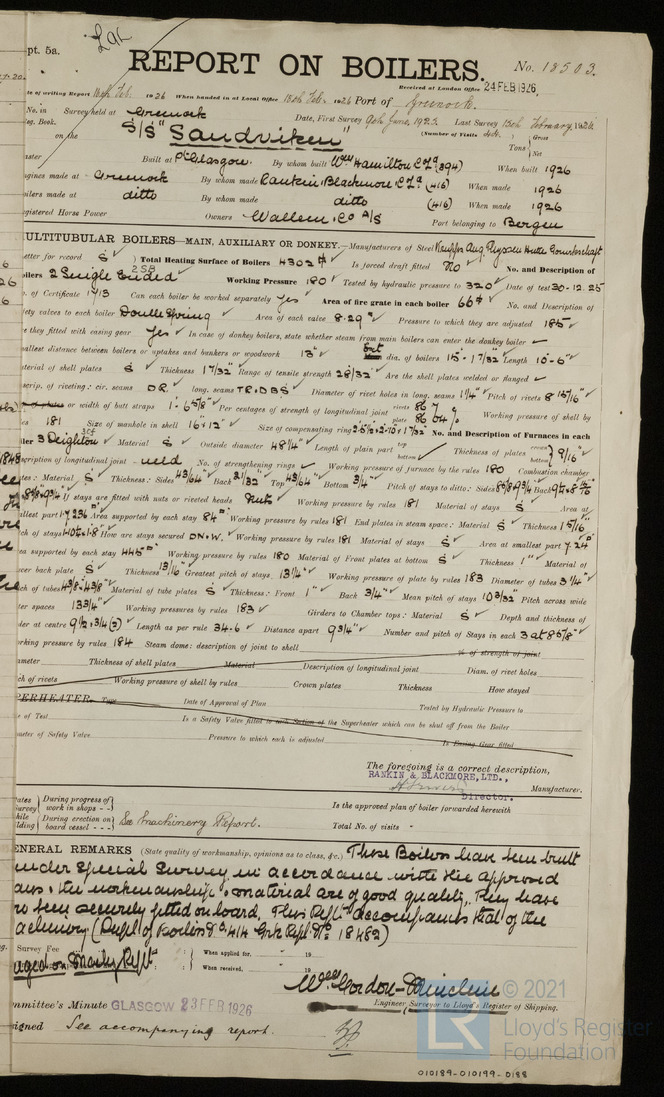 pt. 5a.
REPORT ON BOILERS.
No. 18503.
Received at London Office 24 FEB 1926
te of writing Report 18th Feb. 1926 When handed in at Local Office 18th Feb. 1926 Port of Greenock.
No. in Survey held at Greenock Date, First Survey 9th June, 1925. Last Survey 18th February 1926
eg. Book.
(Number of Visits
on the S/S "Sandviken" Tons { Gross Net
aster Built at Pt Glasgow. By whom built Wm Hamilton & Co Ld (394) When built 1926
ngines made at Greenock By whom made Rankin, Blackmore & Co Ld (416) When made 1926
oilers made at ditto By whom made ditto (416) When made 1926
egistered Horse Power Owners Wallem, & Co A/S Port belonging to Bergen
ULTITUBULAR BOILERS—MAIN, AUXILIARY OR DONKEY.—Manufacturers of Steel
etter for record S Total Heating Surface of Boilers 4302 Is forced draft fitted No No. and Description of
2 SB
oilers 2 Single Ended Working Pressure 180 Tested by hydraulic pressure to 320 Date of test 30-12-25
o. of Certificate 1713 Can each boiler be worked separately Yes Area of fire grate in each boiler 66 No. and Description of
ety valves to each boiler Double Spring Area of each valve 8.29" Pressure to which they are adjusted 185
e they fitted with easing gear Yes In case of donkey boilers, state whether steam from main boilers can enter the donkey boiler
allest distance between boilers or uptakes and bunkers or woodwork 13" Ext dia. of boilers 15'-17/32" Length 10'-6"
aterial of shell plates S Thickness 1 7/32" Range of tensile strength 28/32 Are the shell plates welded or flanged
scrip. of riveting: cir. seams DR. long. seams TR.DBS Diameter of rivet holes in long. seams 1 1/4" Pitch of rivets 8 15/16"
or width of butt straps 1'-6 5/8" Per centages of strength of longitudinal joint rivets 86 plate 86 % Working pressure of shell by
181 Size of manhole in shell 16" x 12" Size of compensating ring No. and Description of Furnaces in each
iler 3 Deighton Material S Outside diameter 48 1/4" Length of plain part top bottom Thickness of plates crown bottom } 9/16"
scription of longitudinal joint weld No. of strengthening rings Working pressure of furnace by the rules 180 Combustion chamber
tes: Material S Thickness: Sides 43/64" Back 21/32" Top 43/64" Bottom 3/4" Pitch of stays to ditto: Sides Back
If stays are fitted with nuts or riveted heads Nuts Working pressure by rules 181 Material of stays S Area at
allest part Area supported by each stay 84 Working pressure by rules 181 End plates in steam space: Material S Thickness 1 5/16"
ch of stays How are stays secured DN.W. Working pressure by rules 181 Material of stays S Area at smallest part 7.24
ea supported by each stay 445 Working pressure by rules 180 Material of Front plates at bottom S Thickness 1" Material of
wer back plate S Thickness 13/16" Greatest pitch of stays 13 1/4" Working pressure of plate by rules 183 Diameter of tubes 3 1/4"
ch of tubes 4 3/8 - 4 3/8" Material of tube plates S Thickness: Front 1" Back 3/4" Mean pitch of stays 10 3/32" Pitch across wide
ter spaces 13 3/4" Working pressures by rules 183 Girders to Chamber tops: Material S Depth and thickness of
der at centre 9 1/2 x 3/4 (2)" Length as per rule 34.6 Distance apart 9 3/4" Number and pitch of Stays in each 3 at 8 5/8"
orking pressure by rules 184 Steam dome: description of joint to shell % of strength of joint
ameter Thickness of shell plates Material Description of longitudinal joint Diam. of rivet holes
ch of rivets Working pressure of shell by rules Crown plates Thickness How stayed
PERHEATER. Type Date of Approval of Plan Tested by Hydraulic Pressure to
e of Test Is a Safety Valve fitted to each Section of the Superheater which can be shut off from the Boiler
meter of Safety Valve Pressure to which each is adjusted Is Easing Gear fitted
The foregoing is a correct description,
RANKIN & BLACKMORE, LTD.,
Manufacturer.
Director.
ates Survey hile lding { During progress of work in shops - - Is the approved plan of boiler forwarded herewith
During erection on board vessel - - - } See Machinery Report. Total No. of visits -
ENERAL REMARKS (State quality of workmanship, opinions as to class, &c.) These Boilers have been built
under Special Survey in accordance with the approved
ans, the workmanship & material are of good quality, They have
been securely fitted on board. This Rept accompanies that of the
achinery (Dupl. of Boilers No 414 Grk Rept No 18462)
Survey Fee When applied for, 19
aged on Machy Rept When received, 19
Wm Gordon-
Engineer Surveyor to Lloyd's Register of Shipping.
mmittee's Minute GLASGOW 23 FEB 1926
igned See accompanying report.
© 2021
Lloyd's Register
Foundation
010189-010199-0188